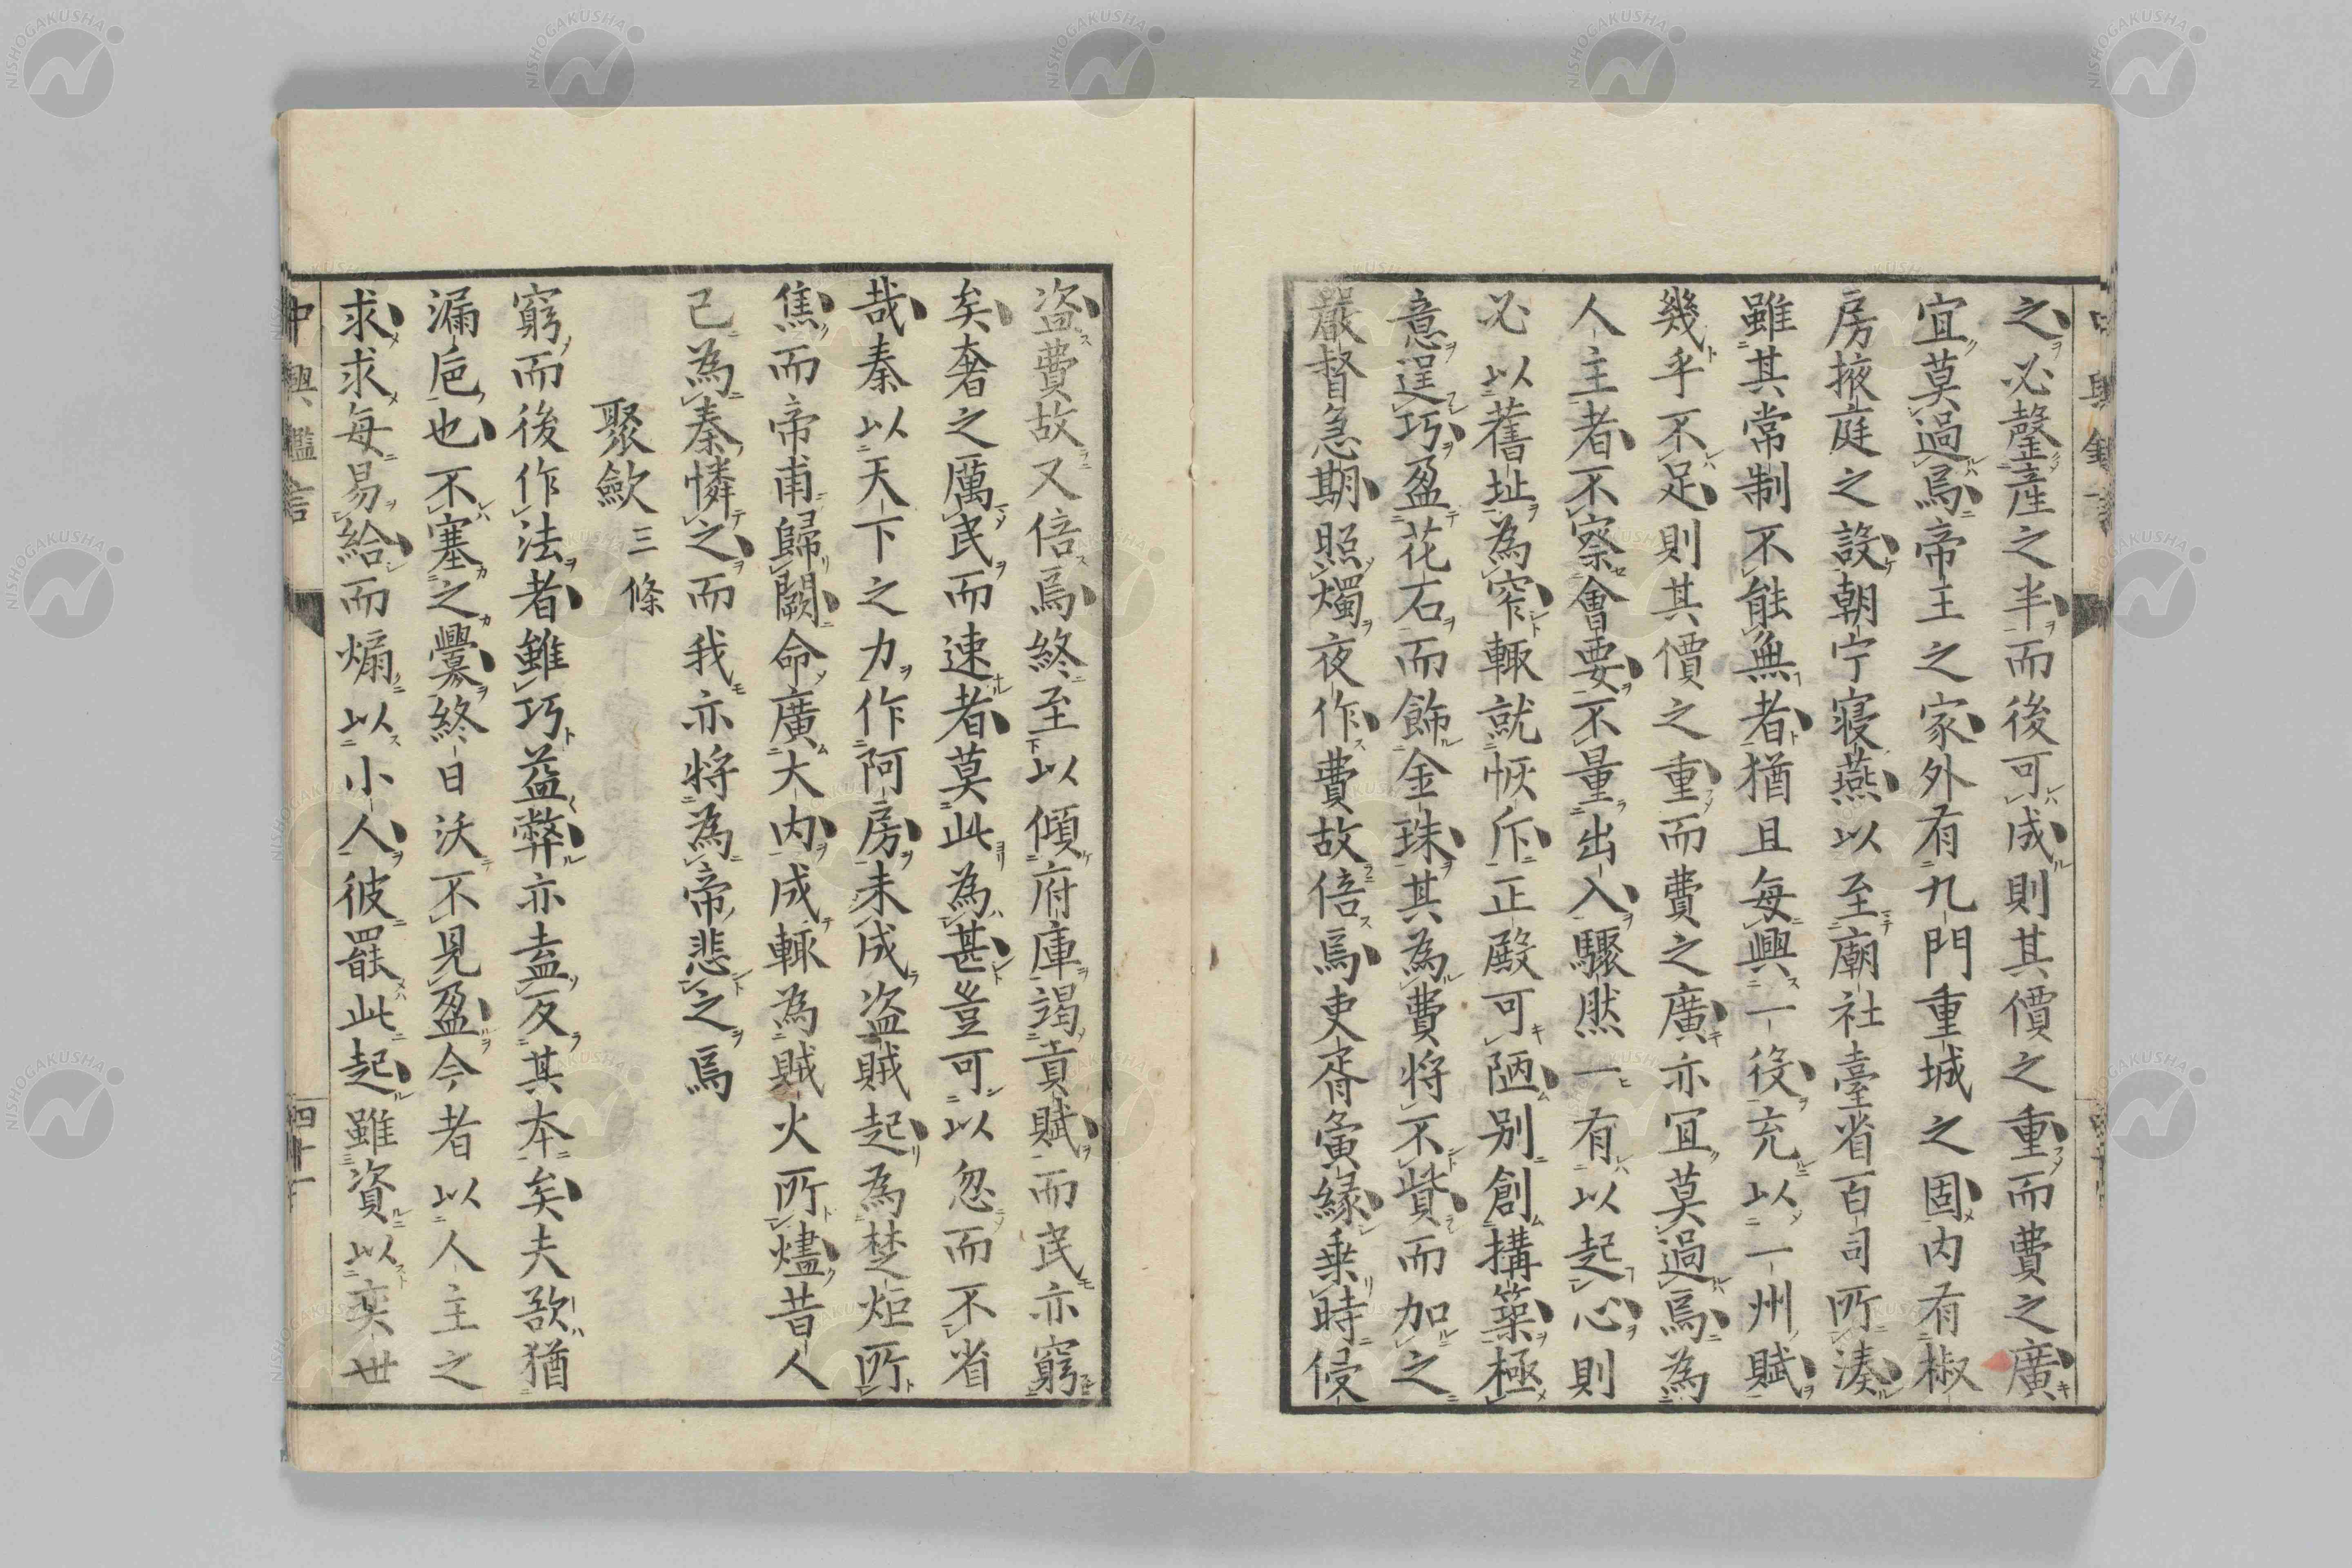 之必罄產之半而後可成則其價之重而費之廣
宜莫過焉帝王之家外有九門重城之固内有椒
房掖庭之設朝宁寢燕以至廟社臺省百司所湊
雖其常制不能無者猶且每興一役充以一州賦
幾乎不足則其價之重而費之廣亦宜莫過焉為
人主者不察會要不量出入驟然一有以起心則
必以舊址為窄輙就恢斥正殿可陋別創搆築極
意逞巧盈花石而飾金珠其為費將不貲而加之
嚴督急期照燭夜作費故倍焉吏胥夤緣乗時侵
盗費故又倍焉終至以傾府庫謁貢賦而民亦窮
矣奢之厲民而速者莫此為甚豈可以忽而不省
哉秦以天下之力作阿房未成盗賊起為楚炬所
焦而帝甫歸闕命廣大内成輙為賊火所燼昔人
已為秦憐之而我亦將為帝悲之焉
聚斂三條
窮而後作法者雖巧益弊亦盍反其本矣夫欲猶
漏巵也不塞之釁終日沃不見盈今者以人主之
求求每易給而煽以小人彼罷此起雖資以奕世
中興鑑言
四十一
NISHOGAKUSHA